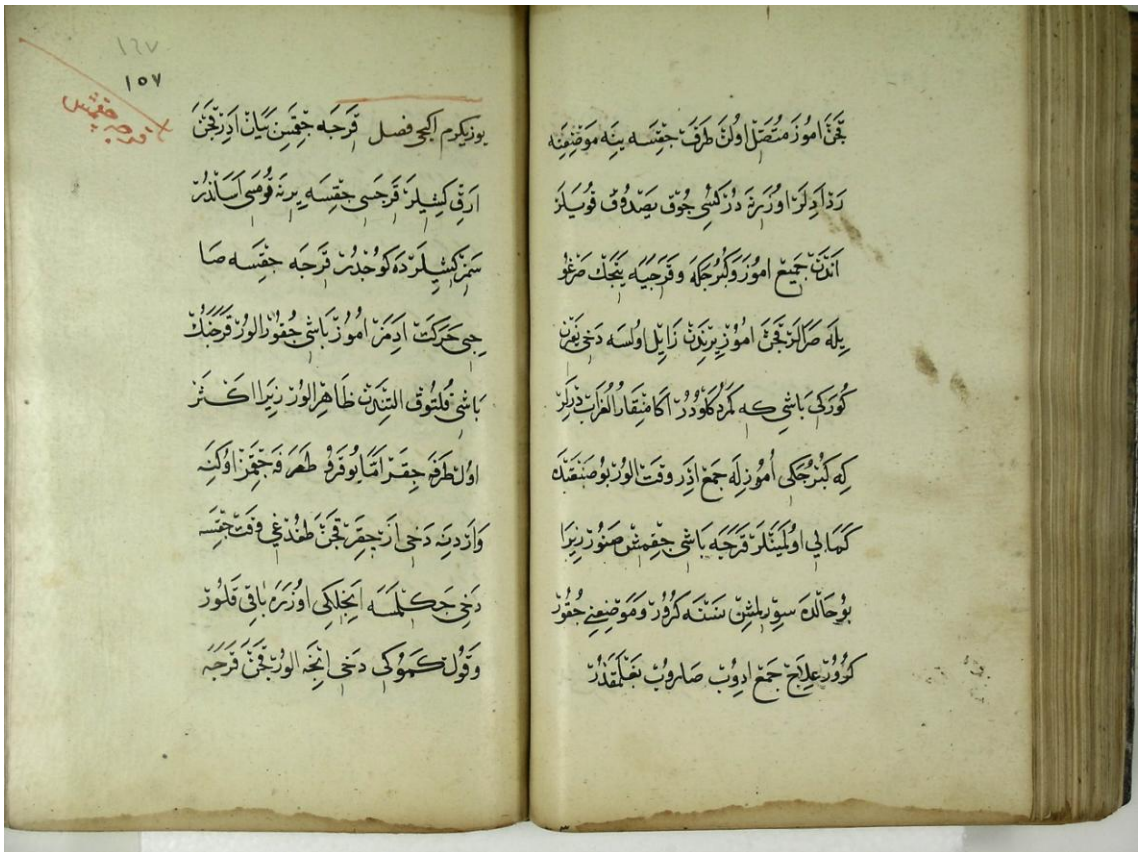 قَچَنْ اموز مُتَصِلْ اولن طَرَفْ چِقسه ينه مَوْضِعِنه
رَدْ ادلر اوزرنه در كشى چوق يصدوق قويلر
اندن جميع اموز و كبرجكه و قرجيه ينجك صرغو
يله صرلر قچن اموز يرندن زايل اولسه دخى يقرن
كورَكى باشى كه كمردكلودر اكا منقار الغراب ديرلر
كه كبرجكى اموزله جمع ادر وقت الور بو صنعتك
كمالى اولمينلر قرجه باشى چقمش صنور زيرا
بو حالده سورلمش نسنه كرور و موضعنى چقور
كورور علاج جمع ادوب صاروب بغلمقدر
١٦٧
١٥٧
قرجه چقمش
يوز يكرم اكنجى فصل قرجه چقسن بيان ادر قچن
ارق كشيلر قرجسى چقسه يرنه قومسى اساندر
سمز كشيلرده كوجدر قرجه چقسه صا
حبى حركت ادمز اموز باشى چقور الور قرجنك
باشى قلتوق التندن ظاهر الور زيرا اكثر
اول طرفه چقر اما يوقرو طرفه چقمز اوكنه
واردينه دخى از چقر قچن طغندغى وقت چقسه
دخى چكلمسه اينجلكى اوزره باقى قلور
و قول كموكى دخى اينجه الور قچن قرجه